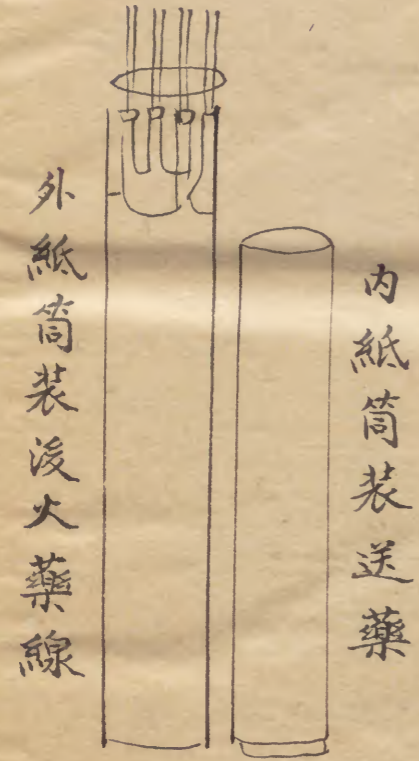 内紙筒装送藥
外紙筒装後火藥線